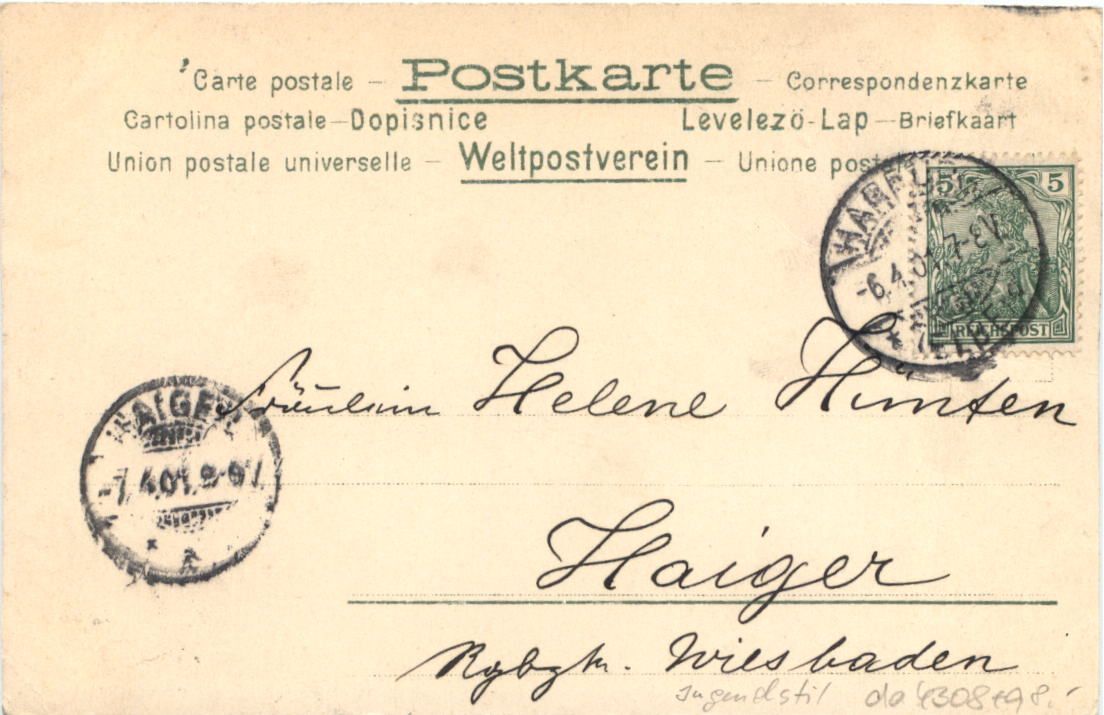 Carte postale – Postkarte – Correspondenzkarte
Cartolina postale – Dopisnice Levelező-Lap – Briefkaart
Union postale universelle – Weltpostverein – Unione
5 5
-6.4.01. 7-8V.
REICHSPOST
HAIGER
-7.4.01. 8-9V.
Fräulein Helene Hünten
Haiger
Rgbzk. Wiesbaden
Jugendstil